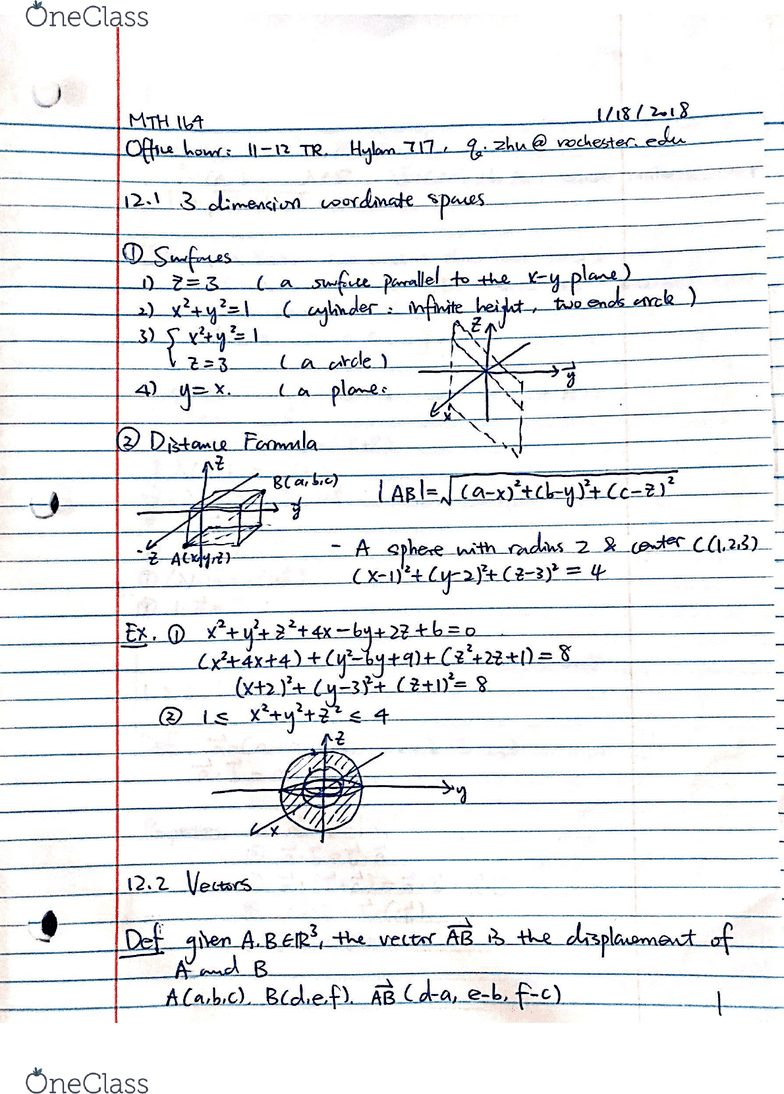 OneClass
MTH 164 1/18/2018
Office hour: 11-12 TR. Hylan 717, q.zhu@rochester.edu
12.1 3 dimension coordinate spaces
① Surfaces
1) z=3 (a surface parallel to the x-y plane)
2) x²+y²=1 (cylinder: infinite height, two ends circle)
3) { x²+y²=1
z=3 (a circle)
4) y=x. (a plane:
z
y
x
② Distance Formula
z
B(a,b,c)
y
|AB|=√(a-x)²+(b-y)²+(c-z)²
-z A(x,y,z)
- A sphere with radius 2 & center C(1,2,3)
(x-1)²+(y-2)²+(z-3)²=4
Ex. ① x²+y²+z²+4x-6y+2z+6=0
(x²+4x+4)+(y²-6y+9)+(z²+2z+1)=8
(x+2)²+(y-3)²+(z+1)²=8
② 1≤ x²+y²+z² ≤ 4
z
y
x
12.2 Vectors
Def given A.B∈ℝ³, the vector AB⃗ is the displacement of
A and B
A(a,b,c). B(d,e,f). AB⃗ (d-a, e-b, f-c)
1
OneClass